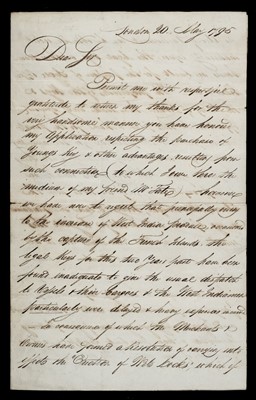 London 20 May 1795
Dear Sir
Permit me with respectful
gratitude to return my thanks for the
very handsome manner you have honored
my application respecting the purchase of
Youngs Key & other advantages resulting from
such connection to which I owe thro the
medium of my friend Mr
we have are to regret that principally owing
to the increase of West India produce occasioned
by the capture of the French Islands the
legal Keys for this two Years past have been
found inadequate to give the usual dispatch
to Vessels & their Cargoes & the West Indiamen
particularly were delayed & heavy expences incurred
In consequence of which the Merchants &
Owners have formed a Resolution of carrying into
effect the Creation of Wet Docks, which if